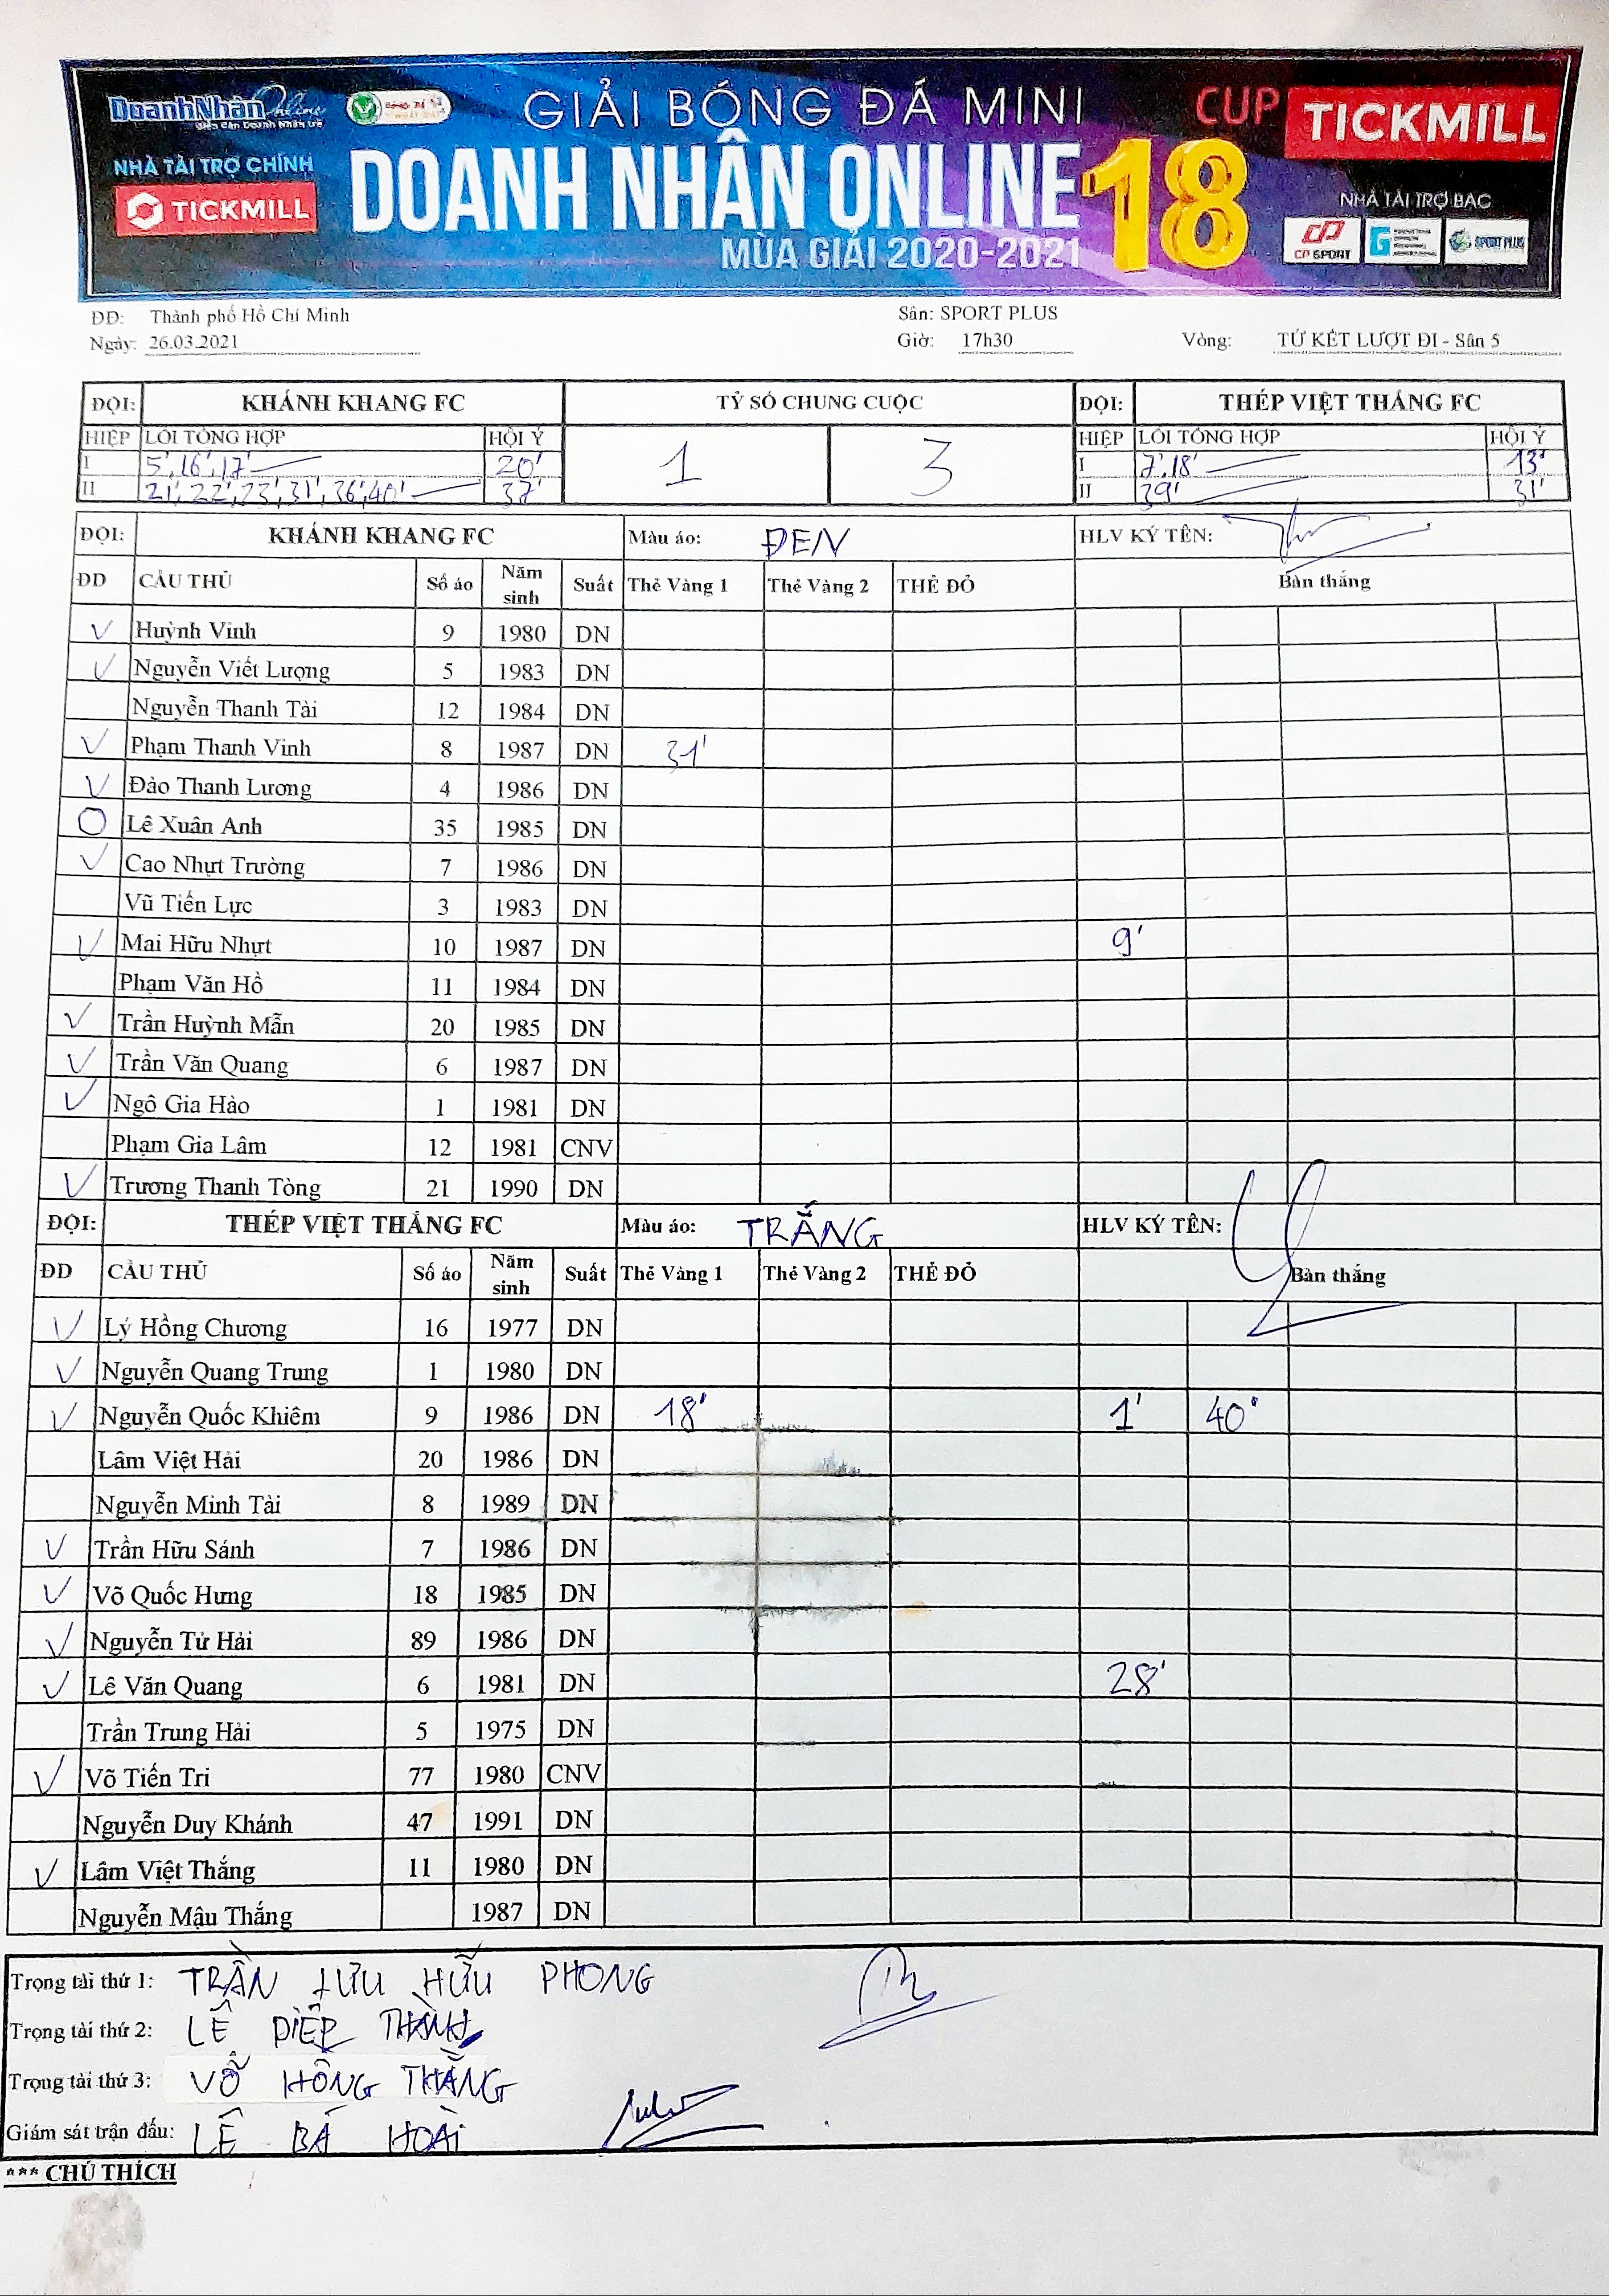 DoanhNhân Online GIẢI BÓNG ĐÁ MINI CUP TICKMILL
Diễn Đàn Doanh Nhân trẻ
NHÀ TÀI TRỢ CHÍNH DOANH NHÂN ONLINE 18
TICKMILL NHÀ TÀI TRỢ BẠC
MÙA GIẢI 2020-2021 CP SPORT SPORT PLUS
ĐĐ: Thành phố Hồ Chí Minh Sân: SPORT PLUS
Ngày: 26.03.2021 Giờ: 17h30 Vòng: TỨ KẾT LƯỢT ĐI - Sân 5
ĐỘI: KHÁNH KHANG FC TỶ SỐ CHUNG CUỘC ĐỘI: THÉP VIỆT THẮNG FC
HIỆP LỖI TỔNG HỢP HỘI Ý 1 3 HIỆP LỖI TỔNG HỢP HỘI Ý
I 5', 16', 17' 20' I 7', 18' 13'
II 21', 22', 23', 31', 36', 40' 37' II 39' 31'
ĐỘI: KHÁNH KHANG FC Màu áo: ĐEN HLV KÝ TÊN:
ĐD CẦU THỦ Số áo Năm sinh Suất Thẻ Vàng 1 Thẻ Vàng 2 THẺ ĐỎ Bàn thắng
V Huỳnh Vinh 9 1980 DN
V Nguyễn Viết Lượng 5 1983 DN
Nguyễn Thanh Tài 12 1984 DN
V Phạm Thanh Vinh 8 1987 DN 31'
V Đào Thanh Lương 4 1986 DN
O Lê Xuân Anh 35 1985 DN
V Cao Nhựt Trường 7 1986 DN
Vũ Tiến Lực 3 1983 DN
V Mai Hữu Nhựt 10 1987 DN 9'
Phạm Văn Hồ 11 1984 DN
V Trần Huỳnh Mẫn 20 1985 DN
V Trần Văn Quang 6 1987 DN
V Ngô Gia Hào 1 1981 DN
Phạm Gia Lâm 12 1981 CNV
V Trương Thanh Tòng 21 1990 DN
ĐỘI: THÉP VIỆT THẮNG FC Màu áo: TRẮNG HLV KÝ TÊN:
ĐD CẦU THỦ Số áo Năm sinh Suất Thẻ Vàng 1 Thẻ Vàng 2 THẺ ĐỎ Bàn thắng
V Lý Hồng Chương 16 1977 DN
V Nguyễn Quang Trung 1 1980 DN
V Nguyễn Quốc Khiêm 9 1986 DN 18' 1' 40'
Lâm Việt Hải 20 1986 DN
Nguyễn Minh Tài 8 1989 DN
V Trần Hữu Sánh 7 1986 DN
V Võ Quốc Hưng 18 1985 DN
V Nguyễn Tử Hải 89 1986 DN
V Lê Văn Quang 6 1981 DN 28'
Trần Trung Hải 5 1975 DN
V Võ Tiến Tri 77 1980 CNV
Nguyễn Duy Khánh 47 1991 DN
V Lâm Việt Thắng 11 1980 DN
Nguyễn Mậu Thắng 1987 DN
Trọng tài thứ 1: TRẦN LƯU HỮU PHONG
Trọng tài thứ 2: LÊ DIỆP THÀNH
Trọng tài thứ 3: VÕ HỒNG THẮNG
Giám sát trận đấu: LÊ BÁ HOÀI
*** CHÚ THÍCH